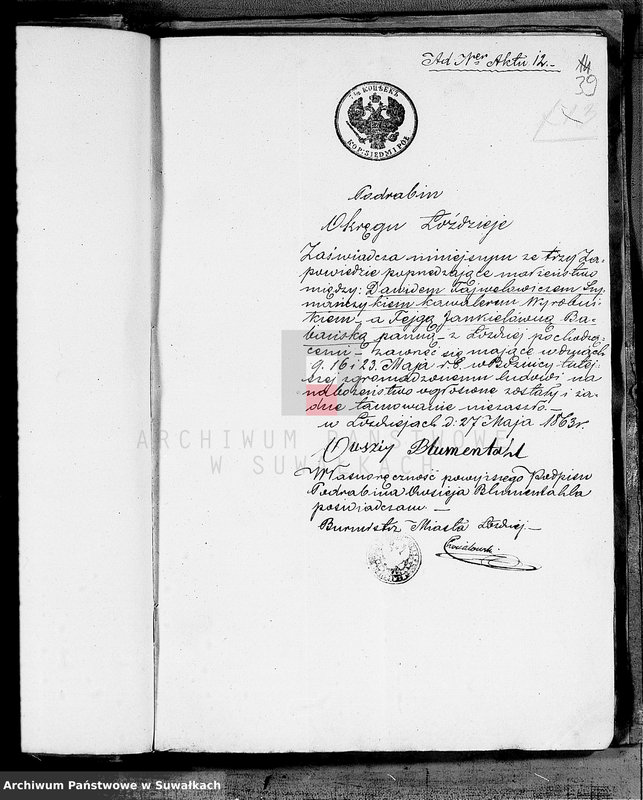 Ad Nrer Aktu 12.-
39
KOP: SIEDM I PÓŁ
Podrabin
Okręgu Łóździeje
Zaświadcza niniejszym ze trzy Za-
powiedzie poprzedzające małżeństwo
między: Dawidem Fajwelowiczem Szy-
mańczykiem kawalerem Wyrobni-
kiem, a Fejgą Jankielówną Ba-
bańską panną - z Łoździej pochodzą-
cemi - zawrzeć się mające w dniach
9. 16 i 23. Maja r. b. w Bóżnicy tutej-
szej zgromadzonemu ludowi na
nabożeństwo ogłoszone zostały i ża-
dne tamowanie niezaszło -
w Łoździejach d: 27 Maja 1863 r.
Owsziy Blumentál
ARCHIWUM PAŃSTWOWE
W SUWAŁKACH
Własnoręczność powyższego Podpisu
Podrabina Owsieja Blumentahla
poświadczam -
Burmistrz Miasta Łoździej -
Archiwum Państwowe w Suwałkach